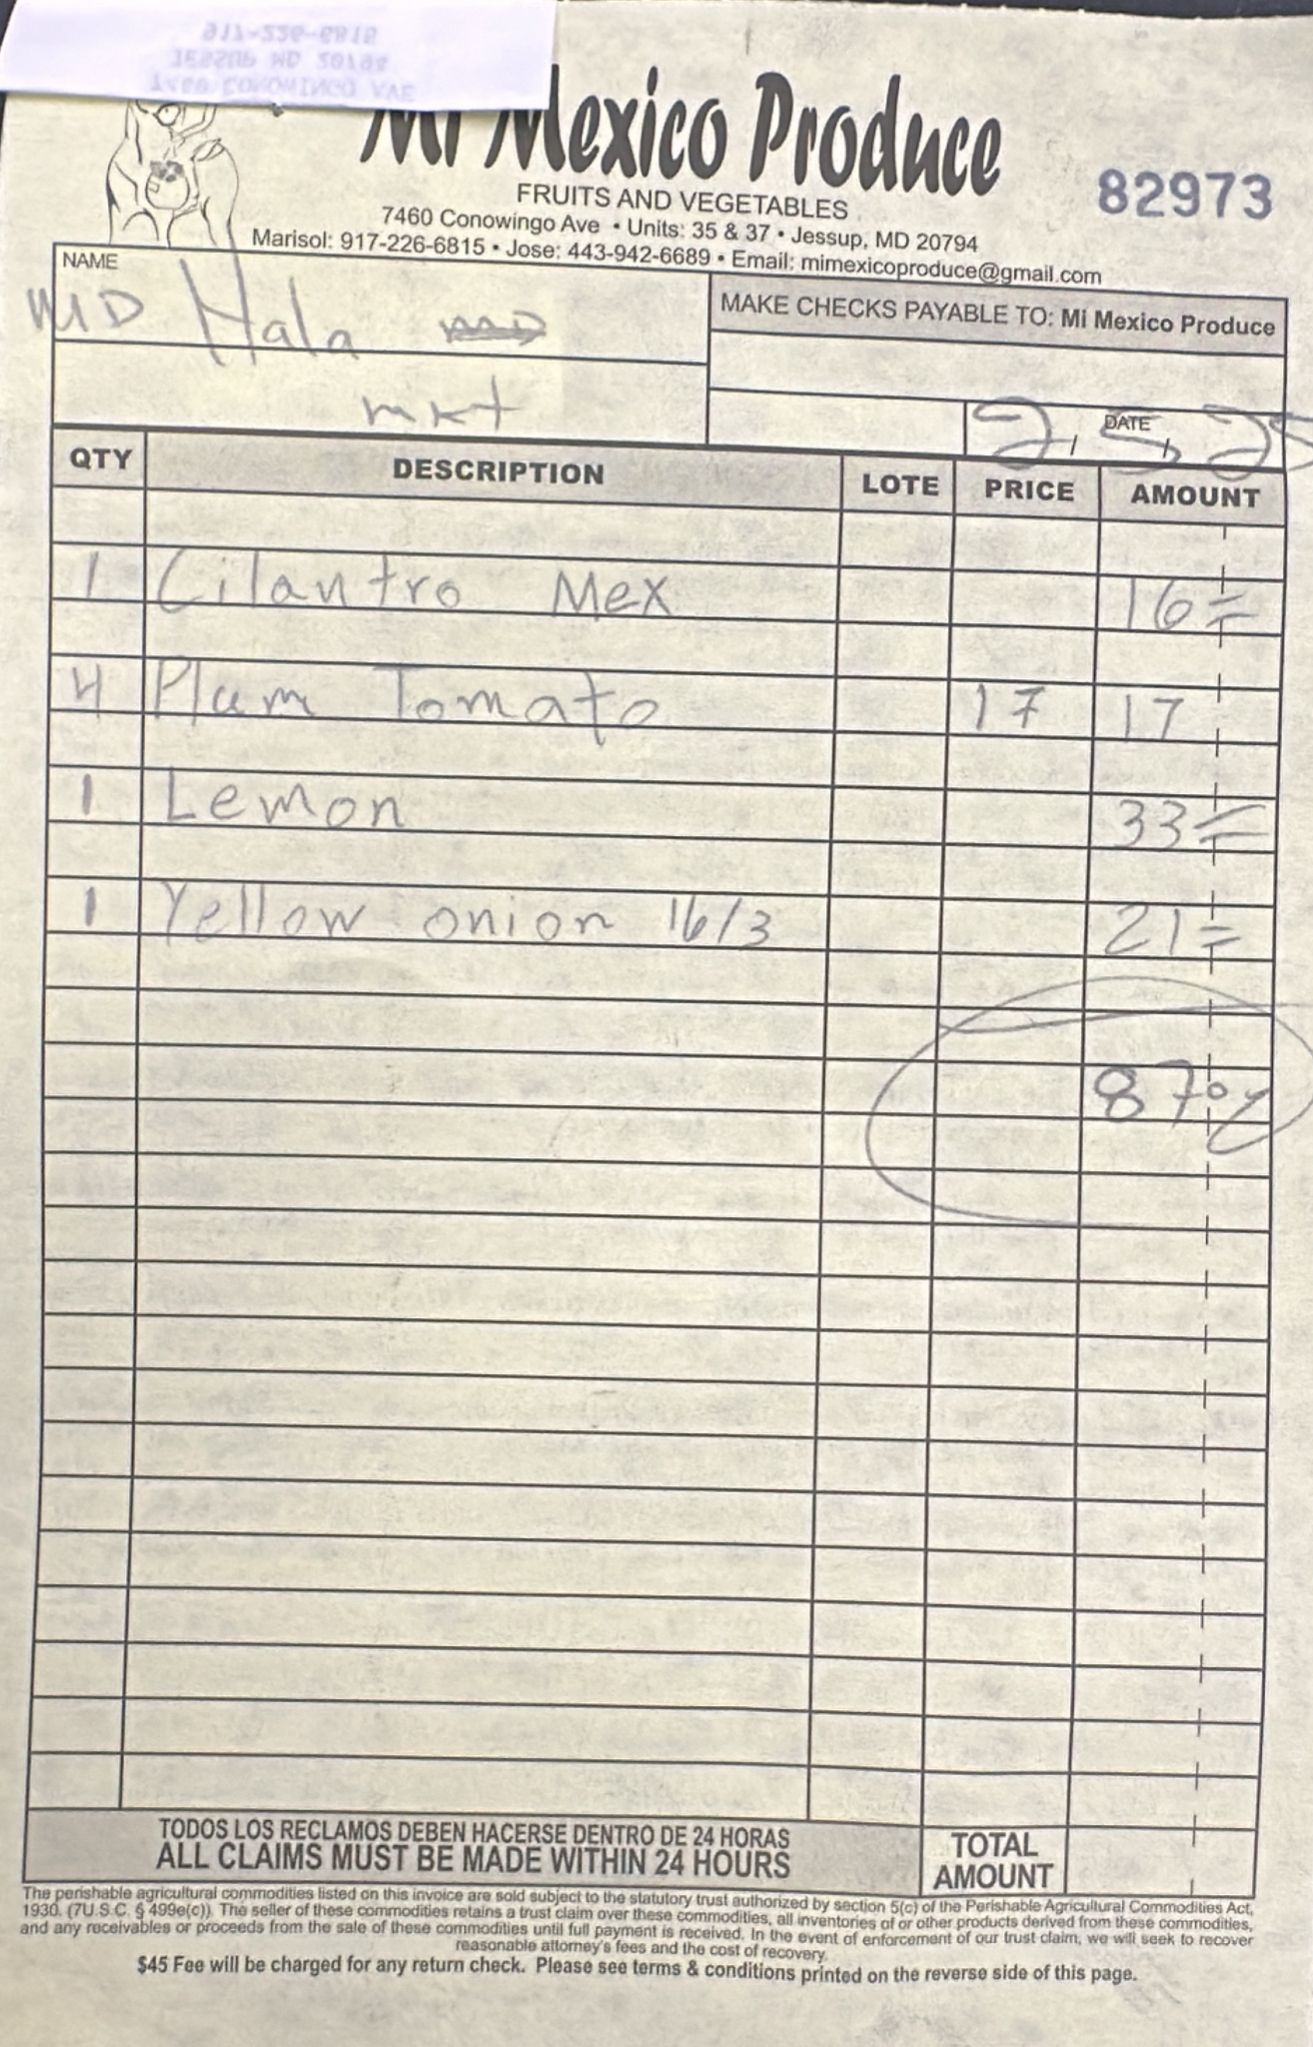 917-226-6815
JESSUP MD 20794
7460 CONOWINGO AVE
Mi Mexico Produce
82973
FRUITS AND VEGETABLES
7460 Conowingo Ave • Units: 35 & 37 • Jessup, MD 20794
Marisol: 917-226-6815 • Jose: 443-942-6689 • Email: mimexicoproduce@gmail.com
NAME
MD Hala
mkt
MAKE CHECKS PAYABLE TO: Mi Mexico Produce
DATE
2, 5, 25
QTY DESCRIPTION LOTE PRICE AMOUNT
1 Cilantro Mex 16=
4 Plum Tomato 17 17
1 Lemon 33=
1 Yellow onion 16/3 21=
87
TODOS LOS RECLAMOS DEBEN HACERSE DENTRO DE 24 HORAS
ALL CLAIMS MUST BE MADE WITHIN 24 HOURS
TOTAL
AMOUNT
The perishable agricultural commodities listed on this invoice are sold subject to the statutory trust authorized by section 5(c) of the Perishable Agricultural Commodities Act,
1930. (7U.S.C. § 499e(c)). The seller of these commodities retains a trust claim over these commodities, all inventories of or other products derived from these commodities,
and any receivables or proceeds from the sale of these commodities until full payment is received. In the event of enforcement of our trust claim, we will seek to recover
reasonable attorney's fees and the cost of recovery.
$45 Fee will be charged for any return check. Please see terms & conditions printed on the reverse side of this page.